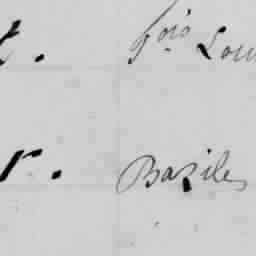 t. fois Lou
r. Basile